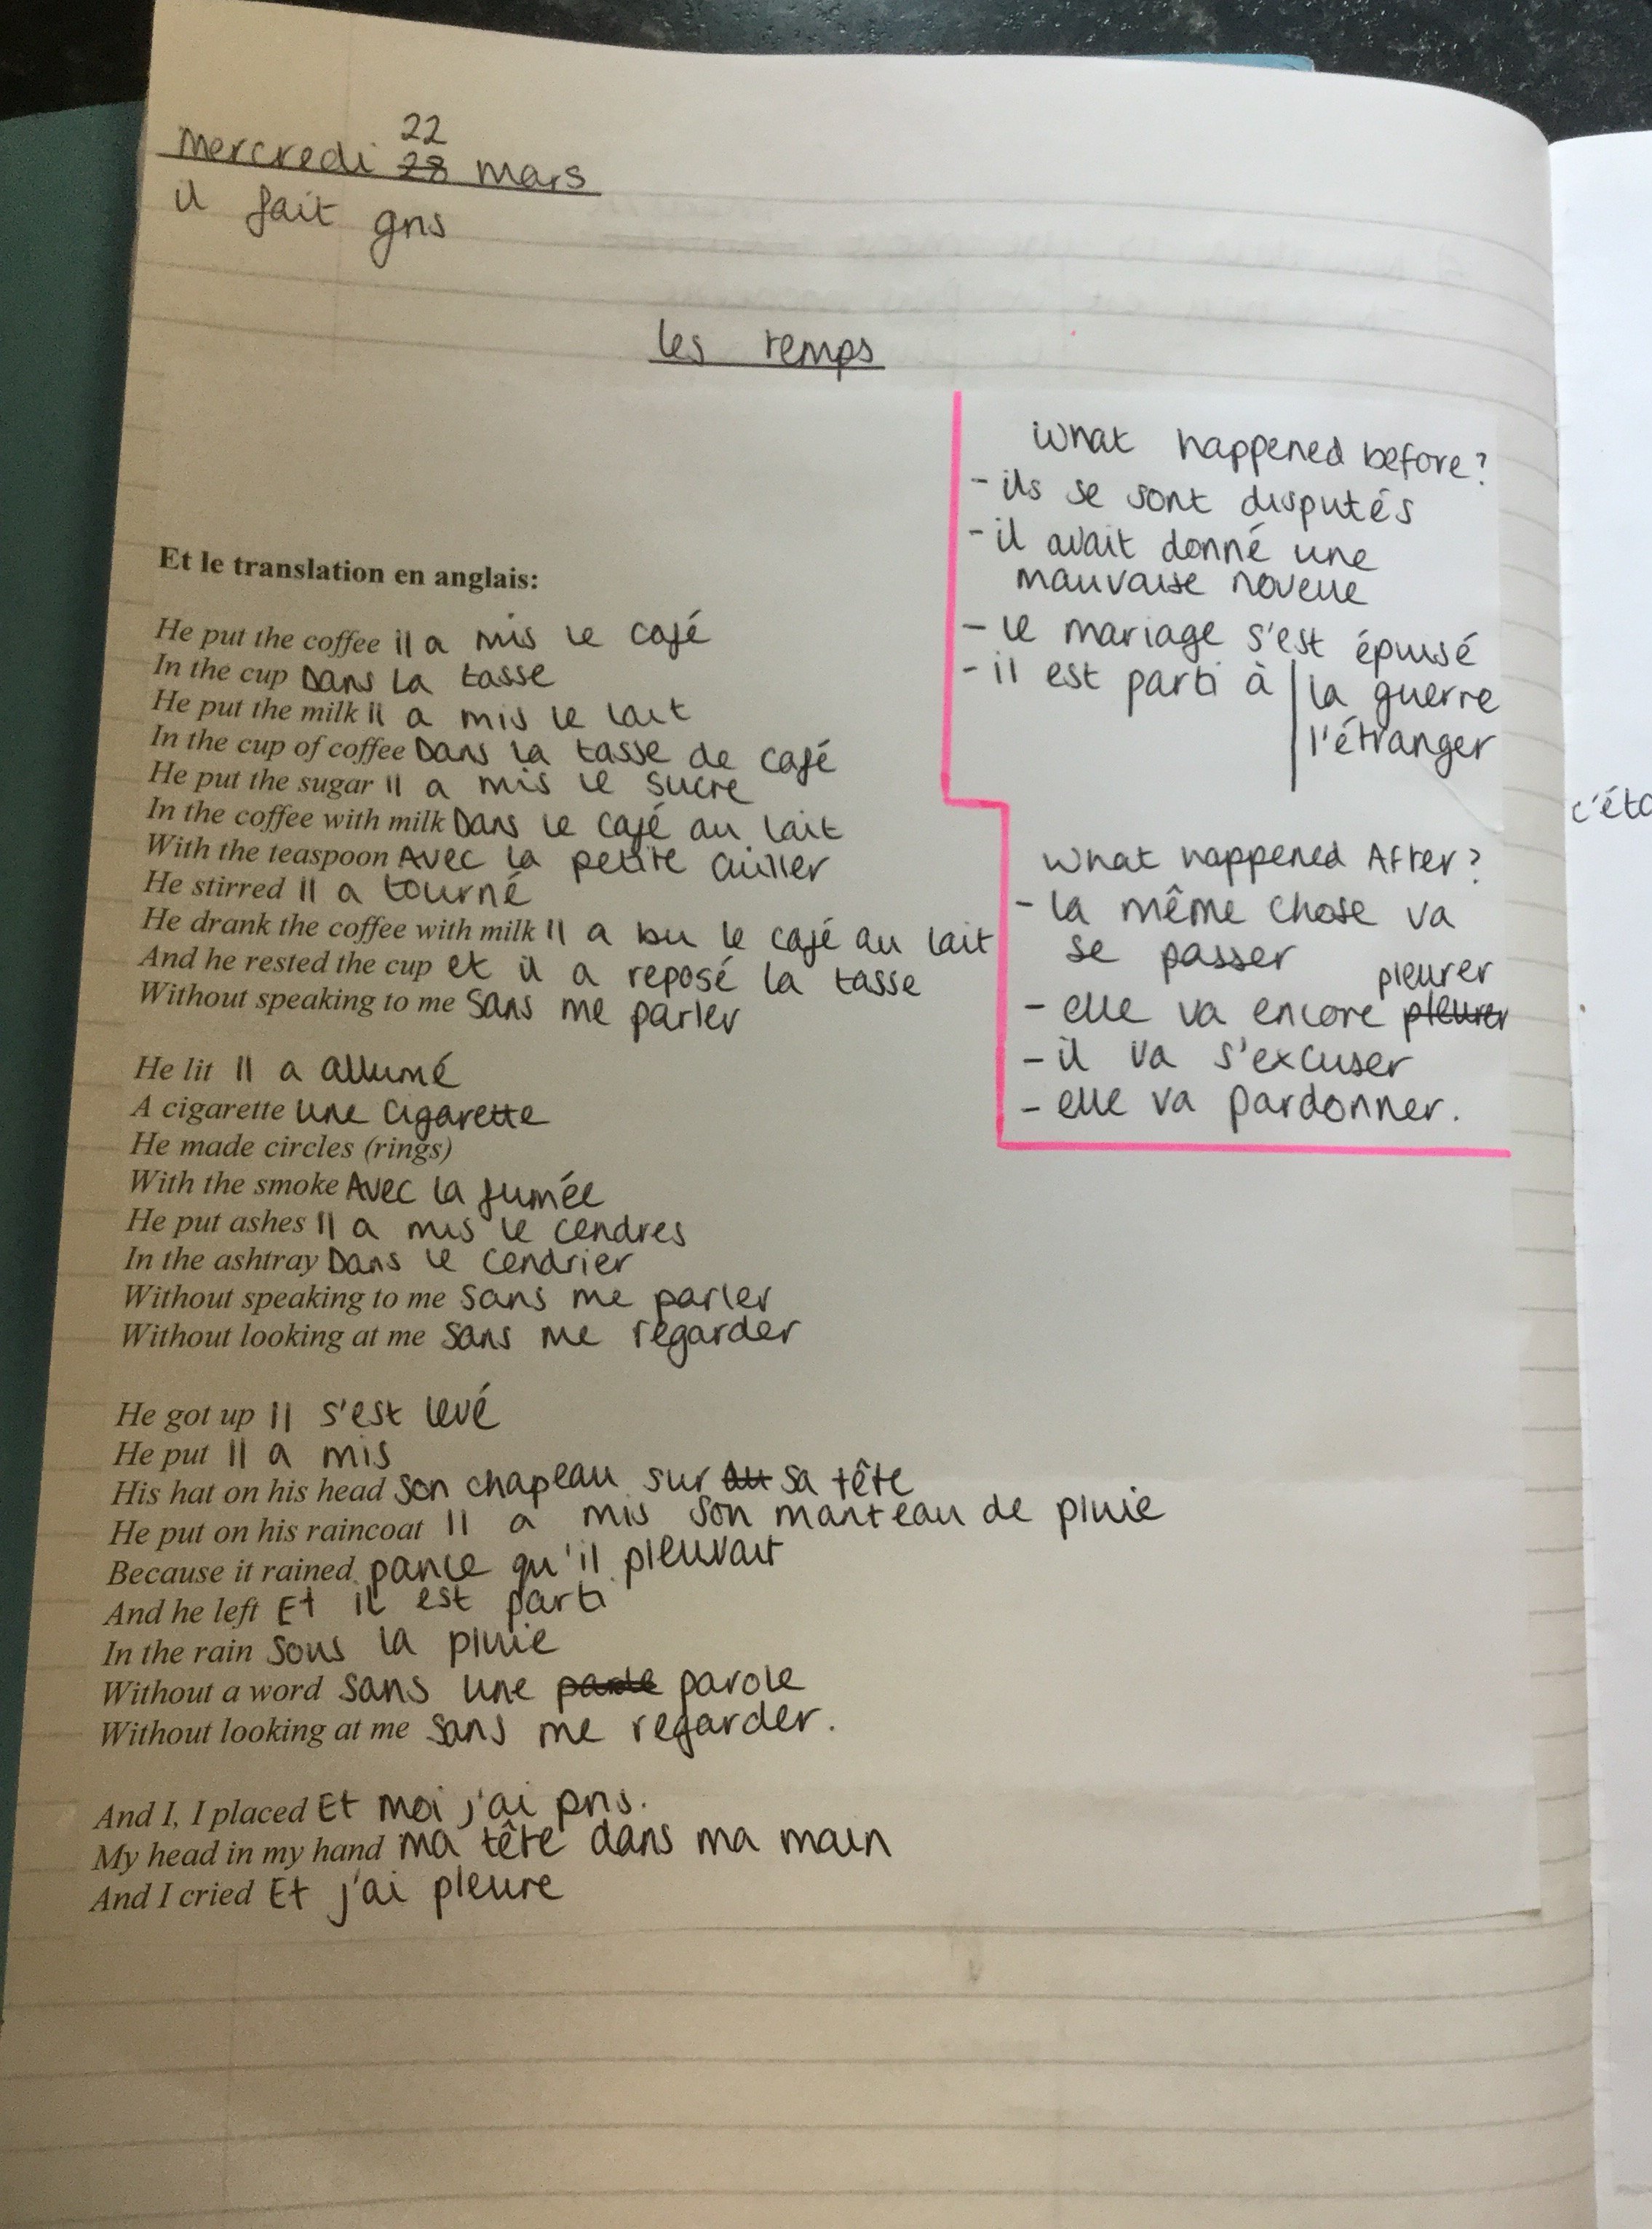 mercredi 22 28 mars
il fait gris
les temps
What happened before?
- ils se sont disputés
- il avait donné une
mauvaise novelle
- le mariage s'est épuisé
- il est parti à | la guerre
l'étranger
Et le translation en anglais:
He put the coffee il a mis le café
In the cup Dans la tasse
He put the milk il a mis le lait
In the cup of coffee Dans la tasse de café
He put the sugar Il a mis le sucre
In the coffee with milk Dans le café au lait
With the teaspoon Avec la petite cuiller
He stirred Il a tourné
He drank the coffee with milk Il a bu le café au lait
And he rested the cup et il a reposé la tasse
Without speaking to me sans me parler
What happened After?
- la même chose va
se passer
- elle va encore pleurer pleurer
- il va s'excuser
- elle va pardonner.
He lit Il a allumé
A cigarette une cigarette
He made circles (rings)
With the smoke Avec la fumée
He put ashes Il a mis le cendres
In the ashtray Dans le cendrier
Without speaking to me sans me parler
Without looking at me sans me regarder
He got up Il s'est levé
He put Il a mis
His hat on his head son chapeau sur sa tête
He put on his raincoat Il a mis son manteau de pluie
Because it rained parce qu'il pleuvait
And he left Et il est parti
In the rain sous la pluie
Without a word sans une parole
Without looking at me sans me regarder.
And I, I placed Et moi j'ai pris.
My head in my hand ma tête dans ma main
And I cried Et j'ai pleure